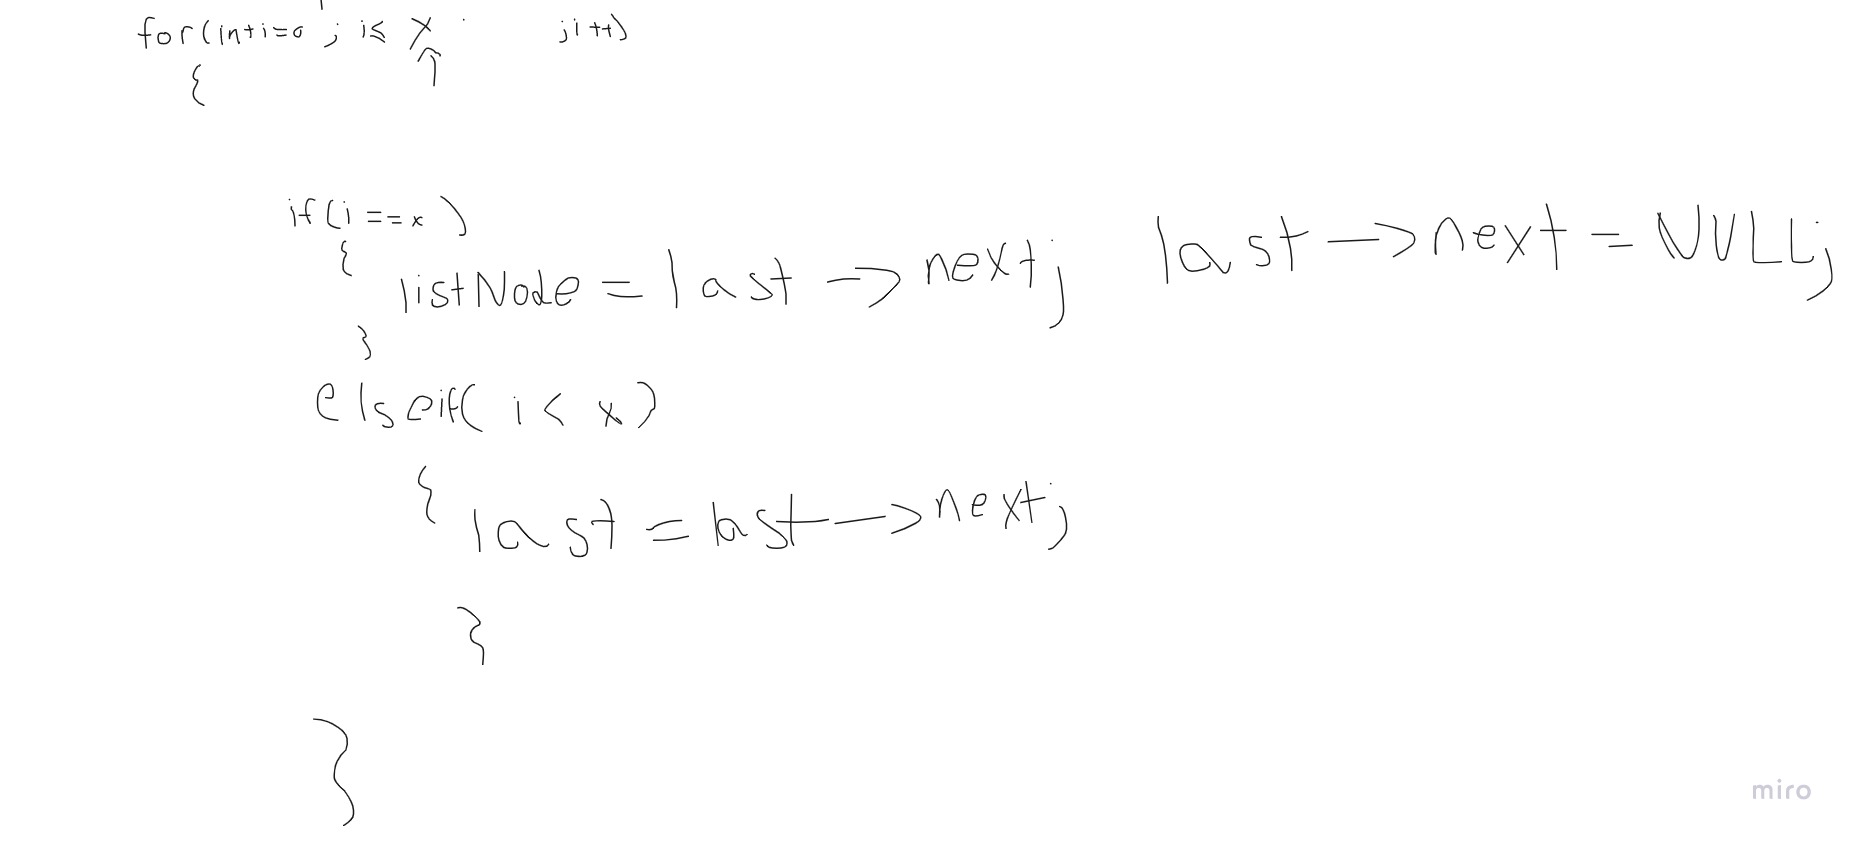 for(int i=0 ; i≤ x ; i++)
{
if(i == x )
{
listNode = last -> next; last -> next = NULL;
}
elseif( i < x )
{
last = last -> next;
}
}
miro